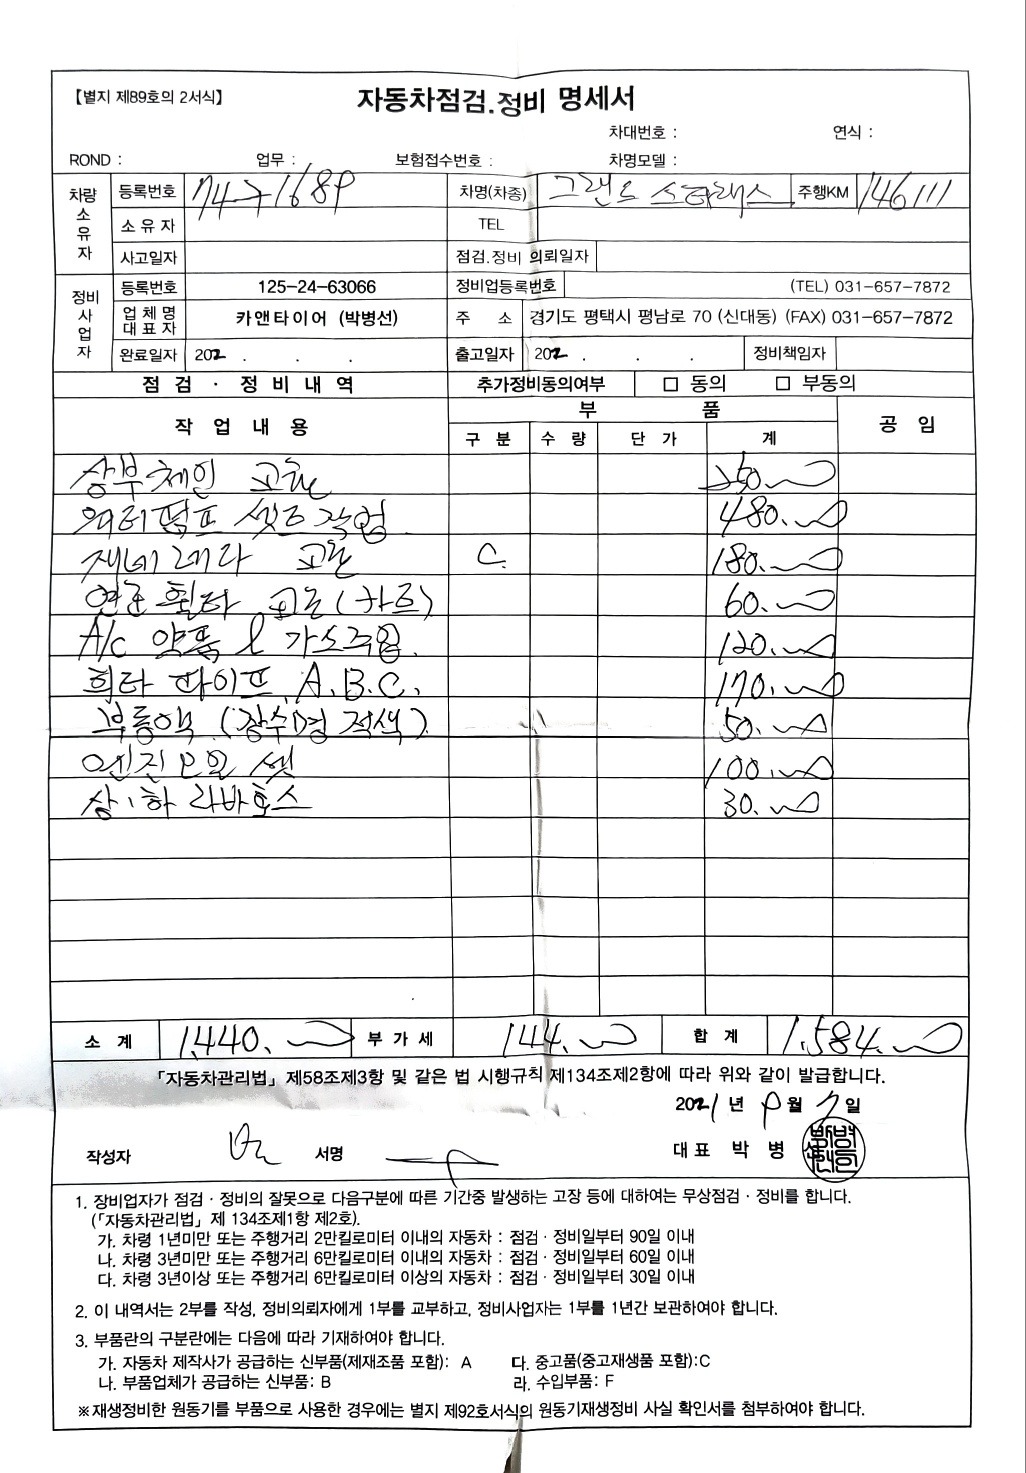 【별지 제89호의 2서식】
자동차점검.정비 명세서
차대번호 : 연식 :
ROND : 업무 : 보험접수번호 : 차명모델 :
차량소유자 등록번호 차명(차종) 그랜드 스타렉스 주행KM 146111
소 유 자 TEL
사고일자 점검.정비 의뢰일자
정비사업자 등록번호 125-24-63066 정비업등록번호 (TEL) 031-657-7872
업 체 명 대 표 자 카앤타이어 (박병선) 주 소 경기도 평택시 평남로 70 (신대동) (FAX) 031-657-7872
완료일자 202 . . . 출고일자 202 . . . 정비책임자
점 검 · 정 비 내 역 추가정비동의여부 □ 동의 □ 부동의
작 업 내 용 부 품 공 임
구 분 수 량 단 가 계
상부체인 교환 250.
워터펌프 셋트작업 480.
재네레다 교환 C. 180.
연료휠타 교환(카트) 60.
A/c 약품 & 가스주입. 120.
희타 파이프 A.B.C. 170.
부동액 (장수명 적색) 50.
엔진오일 셋 100.
상.하 라바호스 30.
소 계 1,440. 부 가 세 144. 합 계 1.584.
「자동차관리법」 제58조제3항 및 같은 법 시행규칙 제134조제2항에 따라 위와 같이 발급합니다.
2021년 9월 7일
작성자 서명 대 표 박 병 선
1. 장비업자가 점검 · 정비의 잘못으로 다음구분에 따른 기간중 발생하는 고장 등에 대하여는 무상점검 · 정비를 합니다.
(「자동차관리법」 제 134조제1항 제2호).
가. 차령 1년미만 또는 주행거리 2만킬로미터 이내의 자동차 : 점검 · 정비일부터 90일 이내
나. 차령 3년미만 또는 주행거리 6만킬로미터 이내의 자동차 : 점검 · 정비일부터 60일 이내
다. 차령 3년이상 또는 주행거리 6만킬로미터 이상의 자동차 : 점검 · 정비일부터 30일 이내
2. 이 내역서는 2부를 작성, 정비의뢰자에게 1부를 교부하고, 정비사업자는 1부를 1년간 보관하여야 합니다.
3. 부품란의 구분란에는 다음에 따라 기재하여야 합니다.
가. 자동차 제작사가 공급하는 신부품(제재조품 포함): A 다. 중고품(중고재생품 포함):C
나. 부품업체가 공급하는 신부품: B 라. 수입부품: F
※재생정비한 원동기를 부품으로 사용한 경우에는 별지 제92호서식의 원동기재생정비 사실 확인서를 첨부하여야 합니다.